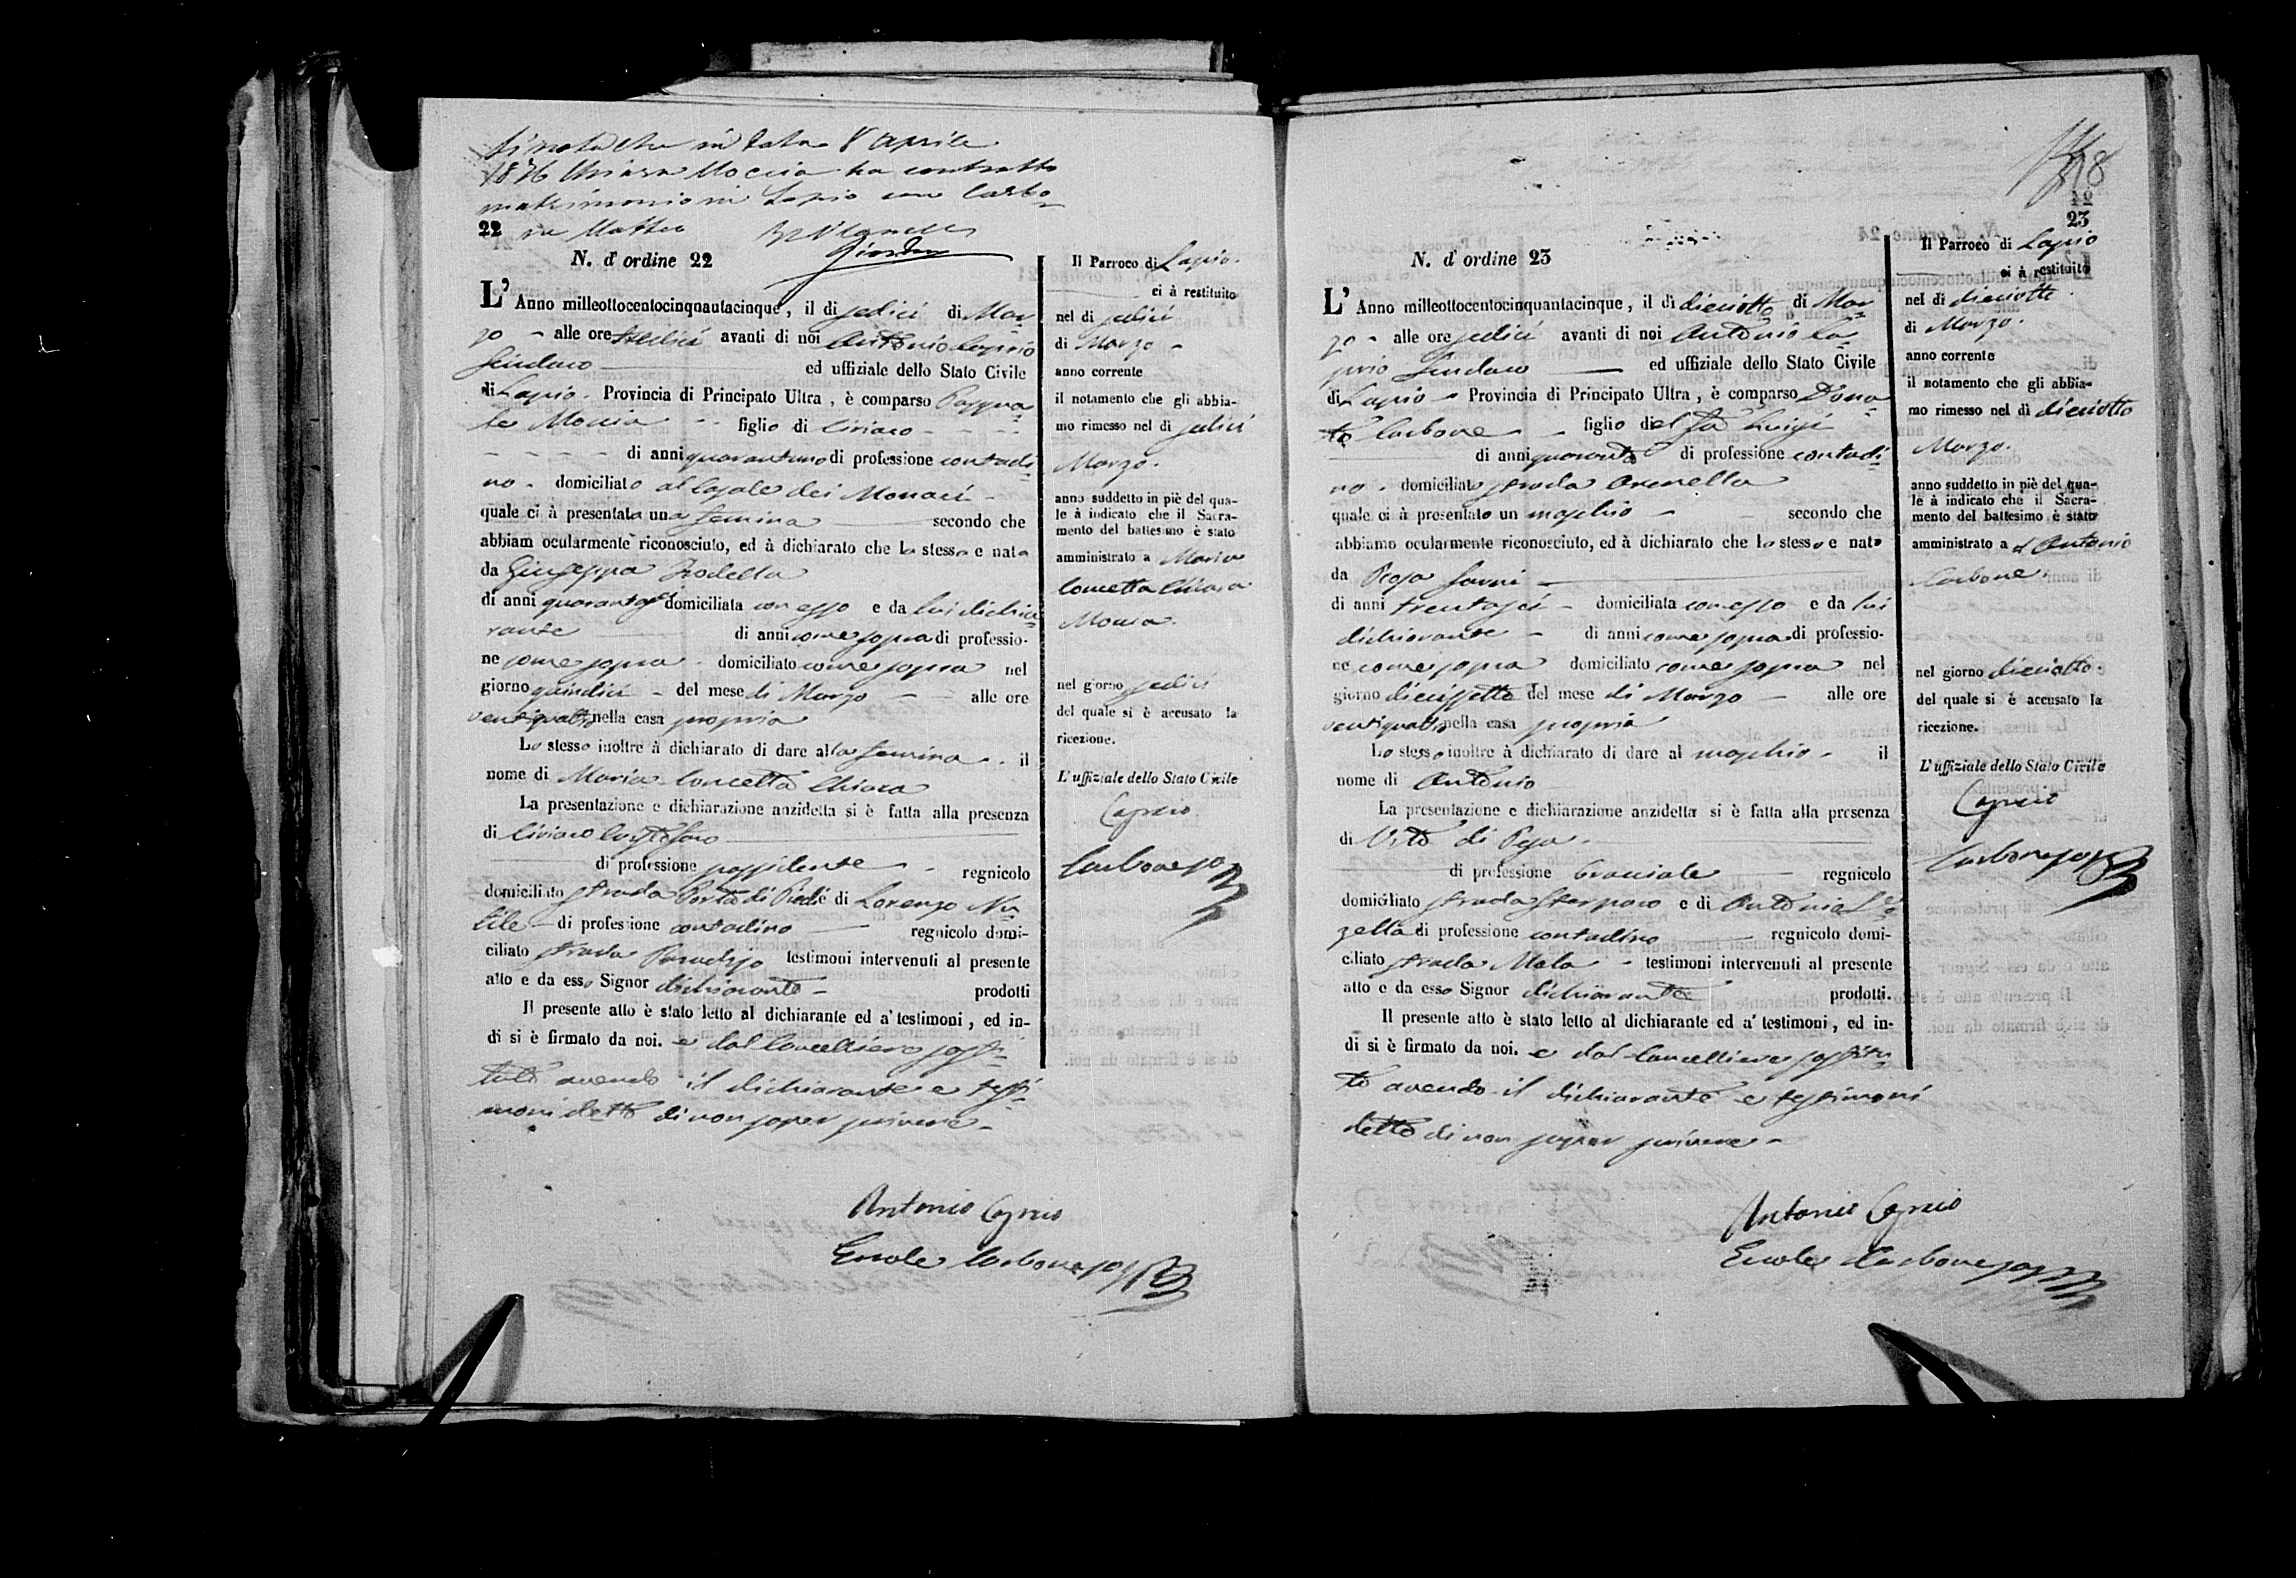 Si nota che in data 8 Aprile
1876 Chiara Moccia ha contratto
matrimonio in Lapio con Carbo-
ne Matteo
22
N. d'ordine 22
L' Anno milleottocentocinquantacinque, il dì sedici di Mar-
zo - alle ore sedici avanti di noi Antonio Caprio
Sindaco ed uffiziale dello Stato Civile
di Lapio. Provincia di Principato Ultra, è comparso Pasqua-
le Moccia figlio di Ciriaco
di anni quarantuno di professione contadi-
no. domiciliato al Casale dei Monaci
quale ci à presentata una femina secondo che
abbiam ocularmente riconosciuto, ed à dichiarato che la stessa e nata
da Giuseppa
di anni domiciliata con esso e da lui dichia-
rante di anni come sopra di professio-
ne come sopra domiciliato come sopra nel
giorno quindici del mese di Marzo alle ore
ventiquattro nella casa propria
Lo stesso inoltre à dichiarato di dare alla femina il
nome di Maria Concetta Chiara
La presentazione e dichiarazione anzidetta si è fatta alla presenza
di Ciriaco
di professione possidente regnicolo
domiciliato strada Porta di Piedi e di Lorenzo
di professione contadino regnicolo domi-
ciliato strada Paradiso testimoni intervenuti al presente
atto e da esso Signor dichiarante prodotti
Il presente atto è stato letto al dichiarante ed a' testimoni, ed in-
di si è firmato da noi. e dal Cancelliere sosti-
tuto avendo il dichiarante e testi-
moni detto di non saper scrivere
Antonio Caprio
Ercole Carbone
Il Parroco di Lapio.
ci à restituito
nel dì sedici
di Marzo
anno corrente
il notamento che gli abbia-
mo rimesso nel dì sedici
Marzo.
anno suddetto in piè del qua-
le à indicato che il Sacra-
mento del battesimo è stato
amministrato a Maria
Concetta Chiara
Moccia.
nel giorno sedici
del quale si è accusato la
ricezione.
L'uffiziale dello Stato Civile
Caprio
Carbone
18
23
N. d'ordine 23
L' Anno milleottocentocinquantacinque, il dì dieciotto di Mar-
zo - alle ore sedici avanti di noi Antonio Ca-
prio Sindaco ed uffiziale dello Stato Civile
di Lapio Provincia di Principato Ultra, è comparso Dona-
to Carbone figlio del fu Luigi
di anni quaranta di professione contadi-
no. domiciliato strada Arenella
quale ci à presentato un maschio secondo che
abbiamo ocularmente riconosciuto, ed à dichiarato che lo stesso e nato
da Rosa
di anni trentasei domiciliata con esso e da lui
dichiarante di anni come sopra di professio-
ne come sopra domiciliato come sopra nel
giorno diecissette del mese di Marzo alle ore
ventiquattro nella casa propria
Lo stesso inoltre à dichiarato di dare al maschio il
nome di Antonio
La presentazione e dichiarazione anzidetta si è fatta alla presenza
di Vito di Pesa
di professione bracciale regnicolo
domiciliato strada e di Antonio
di professione contadino regnicolo domi-
ciliato strada Mala testimoni intervenuti al presente
atto e da esso Signor dichiarante prodotti.
Il presente atto è stato letto al dichiarante ed a' testimoni, ed in-
di si è firmato da noi. e dal Cancelliere sostitu-
to avendo il dichiarante e testimoni
detto di non saper scrivere
Antonio Caprio
Ercole Carbone
Il Parroco di Lapio
ci à restituito
nel dì dieciotto
di Marzo.
anno corrente
il notamento che gli abbia-
mo rimesso nel dì dieciotto
Marzo.
anno suddetto in piè del qua-
le à indicato che il Sacra-
mento del battesimo è stato
amministrato a Antonio
Carbone.
nel giorno dieciotto
del quale si è accusato la
ricezione.
L'uffiziale dello Stato Civile
Caprio
Carbone